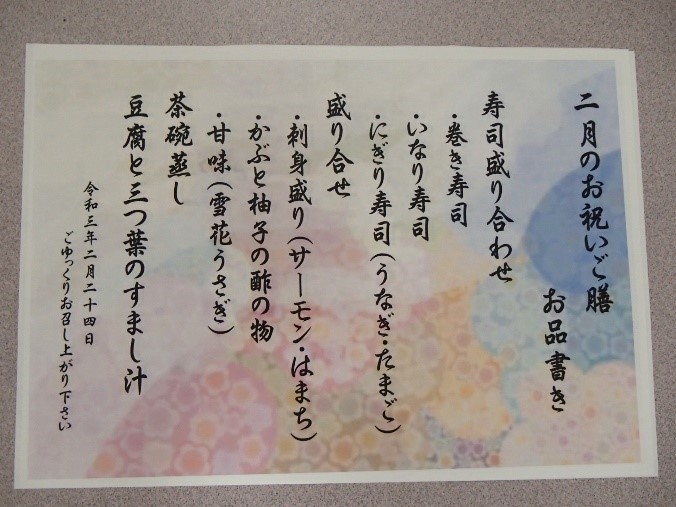 二月のお祝いご膳
お品書き
寿司盛り合わせ
・巻き寿司
・いなり寿司
・にぎり寿司(うなぎ・たまご)
盛り合せ
・刺身盛り(サーモン・はまち)
・かぶと柚子の酢の物
・甘味(雪花うさぎ)
茶碗蒸し
豆腐と三つ葉のすまし汁
令和三年二月二十四日
ごゆっくりお召し上がり下さい